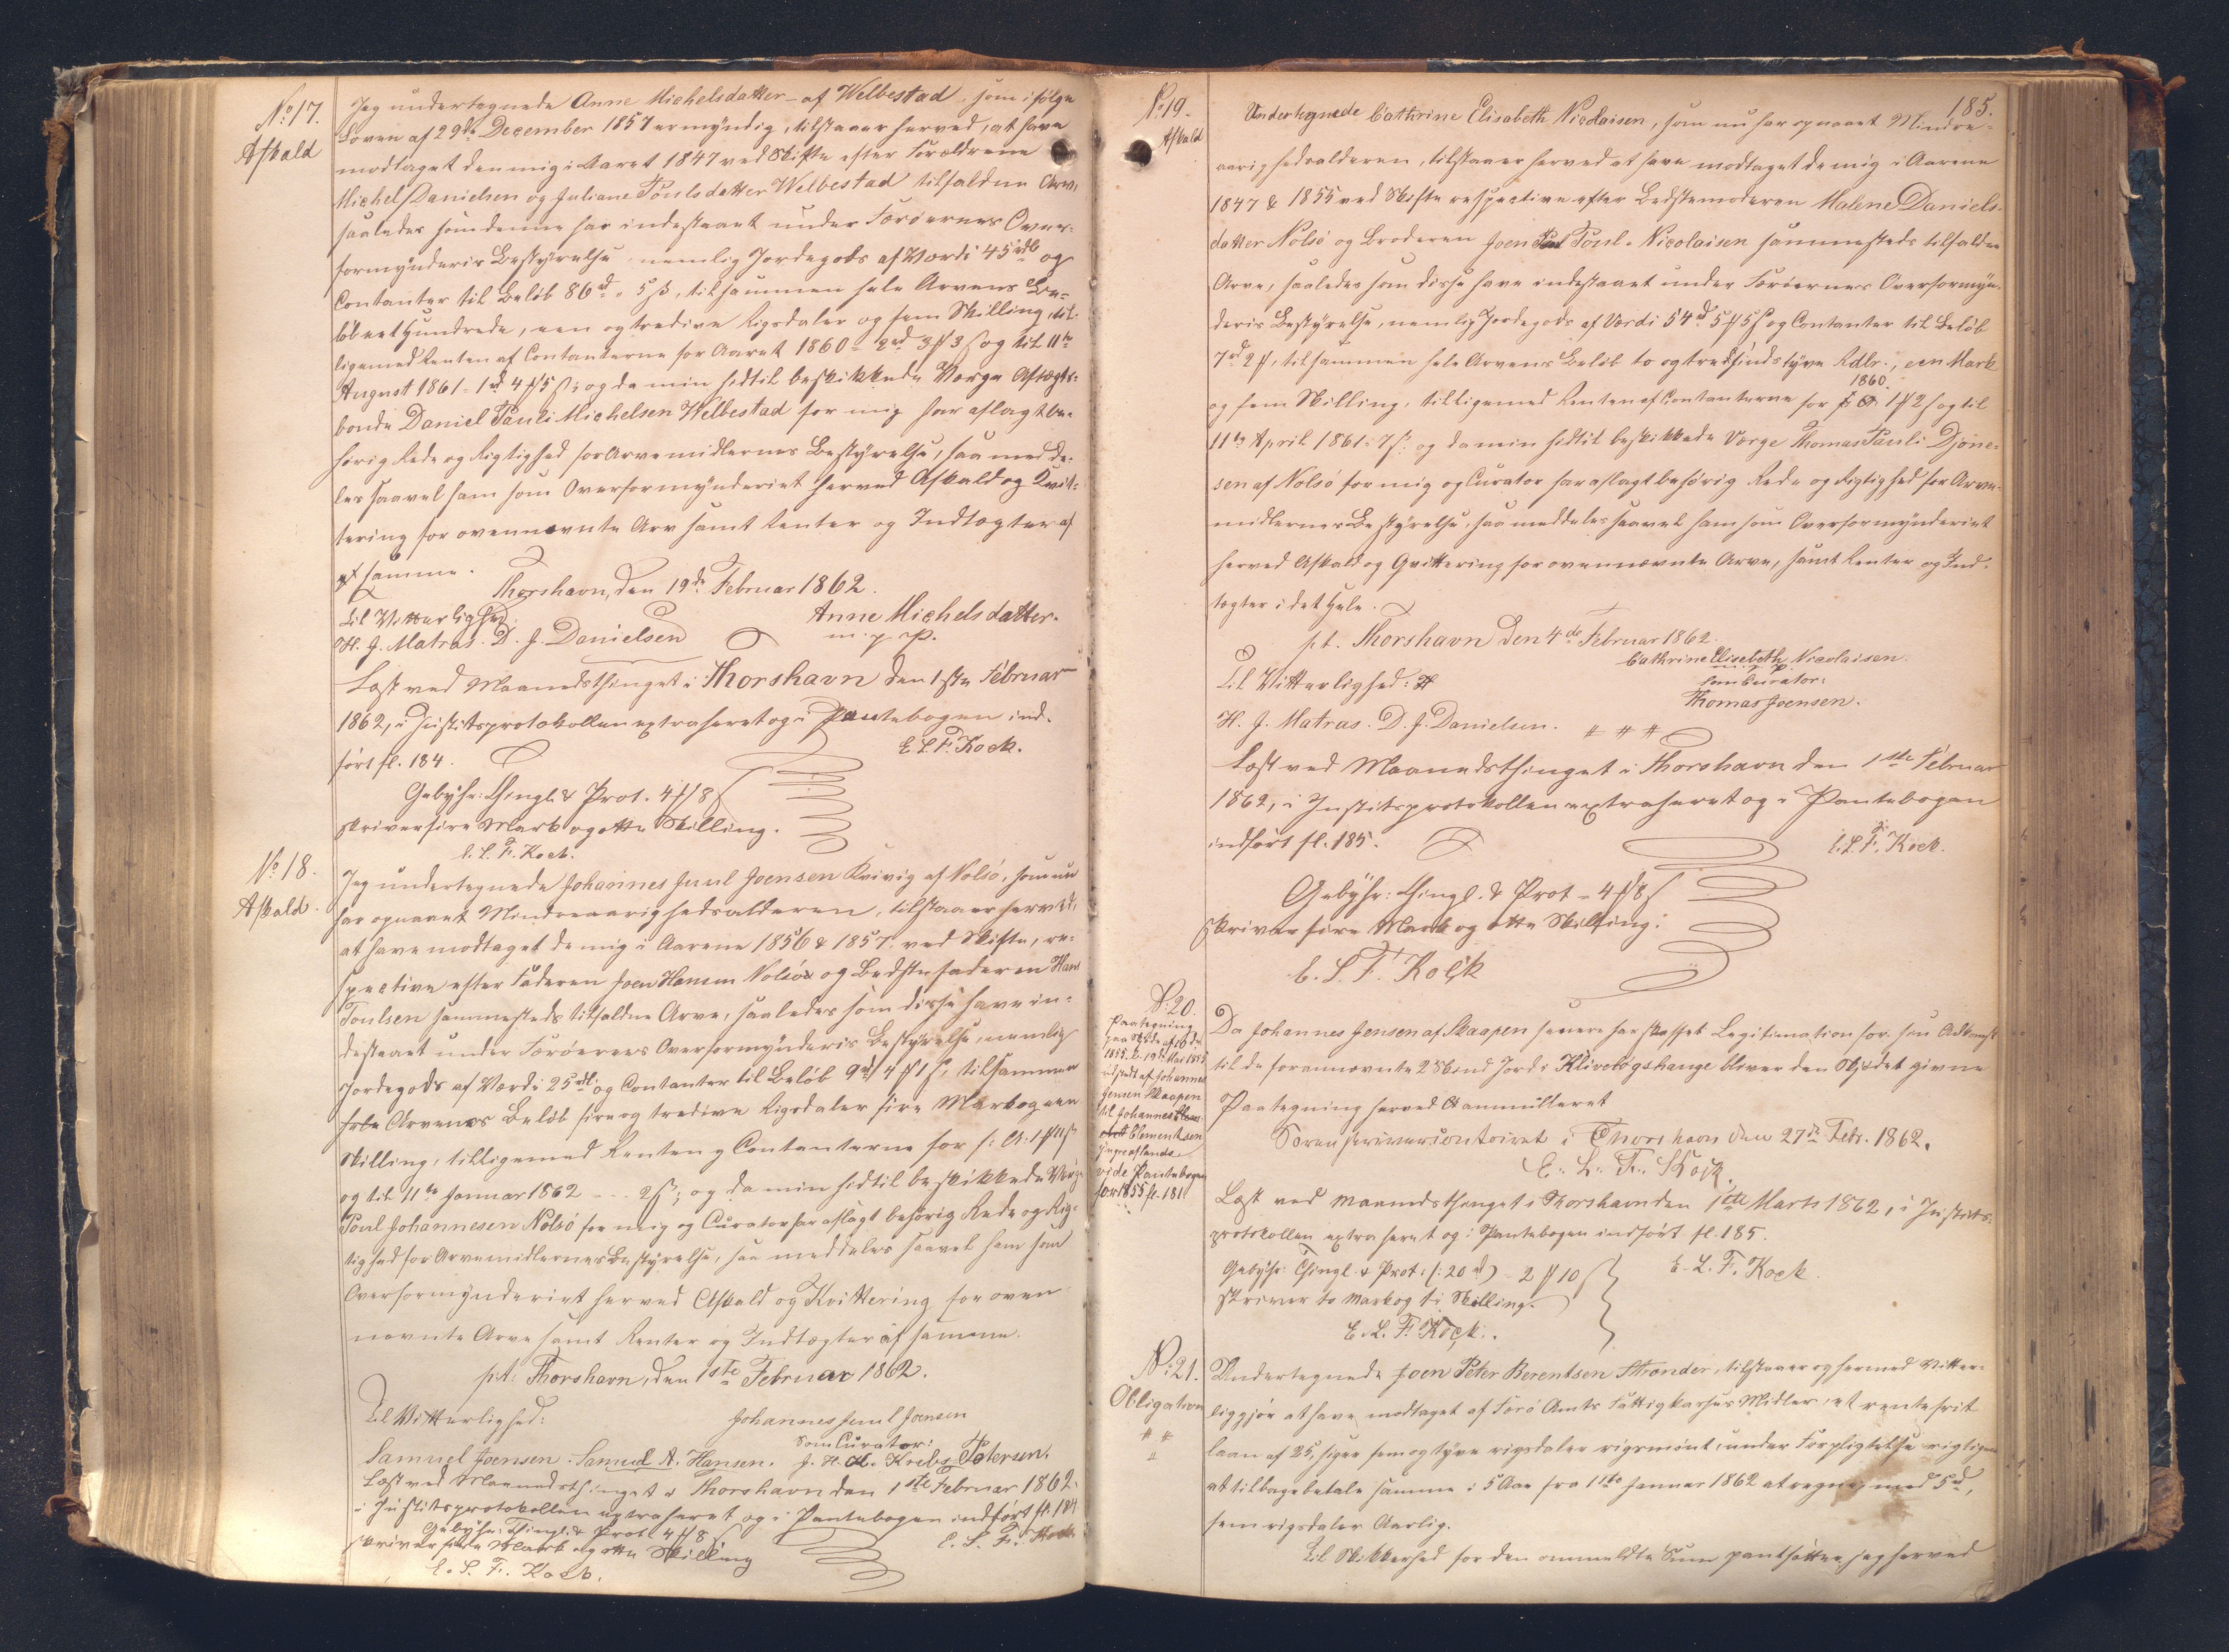 No 17.
Afkald
Jeg undertegnede Anne Michelsdatter af Welbestad, som ifølge
Loven af 29de December 1857 er myndig, tilstaaer herved, at have
modtaget den mig i Aaret 1847 ved Skifte efter Forældrene
Michel Danielsen og Juliane Poulsdatter Welbestad tilfaldne Arv,
saaledes som denne har indestaaet under Færøernes Over-
formynderies Bestyrelse nemlig Jordegods af Værdi 45 rdl og
Contanter til Beløb 86 rd " 5 ß, tilsammen hele Arvens Be-
løb eet Hundrede, een og tredive Rigsdaler og fem Skilling, til-
ligemed Renten af Contanterne for Aaret 1860 = 2 rd 3 # 3 ß og til 11te
August 1861 = 1 rd 4 # 5 ß; og da min hidtil beskikkede Værge Aftægts-
bonde Daniel Pauli Michelsen Welbestad for mig har aflagt be-
hørig Rede og Rigtighed for Arvemidlernes Bestyrelse, saa medde-
les saavel ham som Overformynderiet herved Afkald og Kvit-
tering for ovennævnte Arv samt Renter og Indtægter af
samme.
Thorshavn, den 19de Februar 1862.
Til Vitterlighed
Anne Michelsdatter.
H. J. Matras. D. J. Danielsen
m. p. P.
Læst ved Maanedsthinget i Thorshavn den 1ste Februar
1862, i Justitsprotokollen extraheret og i Pantebogen ind-
ført fl. 184.
E. L. F. Kock.
Gebyhr: Thingl. & Prot. 4 # 8 ß
skriver fire Mark og otte Skilling.
E. L. F. Kock.
No 18.
Afkald.
Jeg undertegnede Johannes Juul Joensen Kvivig af Nolsø, som nu
har opnaaet Mindreaarighedsalderen, tilstaaer herved,
at have modtaget de mig i Aarene 1856 & 1857 ved Skifte, re-
spective efter Faderen Joen Hansen Nolsø og Bedstefaderen Hans
Poulsen sammesteds tilfaldne Arve, saaledes som disse have in-
destaaet under Færøernes Overformynderies Bestyrelse, nemlig
Jordegods af Værdi 25 rdl og Contanter til Beløb 9 rd 4 # 1 ß, tilsammen
hele Arvenes Beløb fire og tredive Rigsdaler fire Mark og een
Skilling, tilligemed Renten Contanterne for f: A:
og til 11te Januar 1862 - - - 2 ß; og da min hidtil beskikkede Værge
Poul Johannesen Nolsø for mig og Curator har aflagt behørig Rede og Rig-
tighed for Arvemidlernes Bestyrelse, saa meddeles saavel ham som
Overformynderiet herved Afkald og Kvittering for oven-
nævnte Arve samt Renter og Indtægter af samme.
p.t. Thorshavn, den 1ste Februar 1862.
Til Vitterlighed:
Johannes Juul Joensen
Som Curator:
Samuel Joensen. Samuel A. Hansen. J. H. Krebs Petersen.
Læst ved Maanedsthinget i Thorshavn den 1ste Februar 1862,
i Justitsprotokollen extraheret og i Pantebogen indført fl. 184.
Gebyhr: Thingl. & Prot. 4 # 8 ß
E. L. F. Kock.
skriver fire Mark og otte Skilling
E. L. F. Kock.
185.
No 19.
Afkald
Undertegnede Cathrine Elisabeth Nicolaisen, som nu har opnaaet Mindre-
aarighedsalderen, tilstaaer herved at have modtaget de mig i Aarene
1847 & 1855 ved Skifte respective efter Bedstemoderen Malene Daniels-
datter Nolsø og Broderen Joen Poul Nicolaisen sammesteds tilfaldne
Arve, saaledes som disse have indestaaet under Færøernes Overformyn-
deries Bestyrelse, nemlig Jordegods af Værdi 54 rd 5 # 5 ß og Contanter til Beløb
7 rd 2 #, tilsammen hele Arvens Beløb to og tredsindstyve Rdlr., een Mark
og fem Skilling, tilligemed Renten af Contanterne for 1860. 1 # 2 ß og til
11te April 1861 = 7 ß; og da min hidtil beskikkede Værge Thomas Pauli Djone-
sen af Nolsø for mig og Curator har aflagt behørig Rede og Rigtighed for Arve-
midlernes Bestyrelse, saa meddeles saavel ham som Overformynderiet
herved Afkald og Qvittering for ovennævnte Arve, samt Renter og Ind-
tægter i det Hele.
p.t. Thorshavn den 4de Februar 1862.
Cathrine Elisabeth Nicolaisen.
Til Vitterlighed:
som Curator:
Thomas Joensen.
H. J. Matras. D. J. Danielsen.
Læst ved Maanedsthinget i Thorshavn den 1ste Februar
1862, i Justitsprotokollen extraheret og i Pantebogen
indført fl. 185.
E. L. F. Kock.
Gebyhr: Thingl. & Prot = 4 # 8 ß
skriver fire Mark og otte Skilling:
E. L. F. Kock
No 20.
Paategning
paa Skøde af
1855. 19de Mai 1855
udstedt af Johannes
Jensen Skaapen
til Johannes
Clementsen
vide Pantebogen
for 1855 fl. 181
Da Johannes Jensen af Skaapen senere har skaffet Legitimation for sin Adkomst
til de forannævnte 2 Skind Jord i Kliveløgshauge bliver den Skjødet givne
Paategning herved Annulleret
Sorenskrivercontoiret i Thorshavn den 27de Febr. 1862.
E. L. F. Kock.
Læst ved Maanedsthinget i Thorshavn den 1ste Marts 1862, i Justits-
protokollen extraheret og i Pantebogen indført fl. 185.
Gebyhr: Thingl. & Prot: (: 20 rd) = 2 # 10 ß
E. L. F. Kock.
skriver to Mark og ti Skilling.
E. L. F. Kock.
No 21.
Obligation
Undertegnede Joen Peter Berentsen Strønder, tilstaaer og hermed Vitter-
liggjør at have modtaget af Færø Amts Fattigkasses Midler, et rentefrit
Laan af 25, siger fem og tyve rigsdaler rigsmønt, under Forpligtelse rigtigen
at tilbagebetale samme i 5 Aar fra 1ste Januar 1862 at regne, med 5 rd,
fem rigsdaler Aarlig.
Til Sikkerhed for den ommeldte Sum pantsætter jeg herved